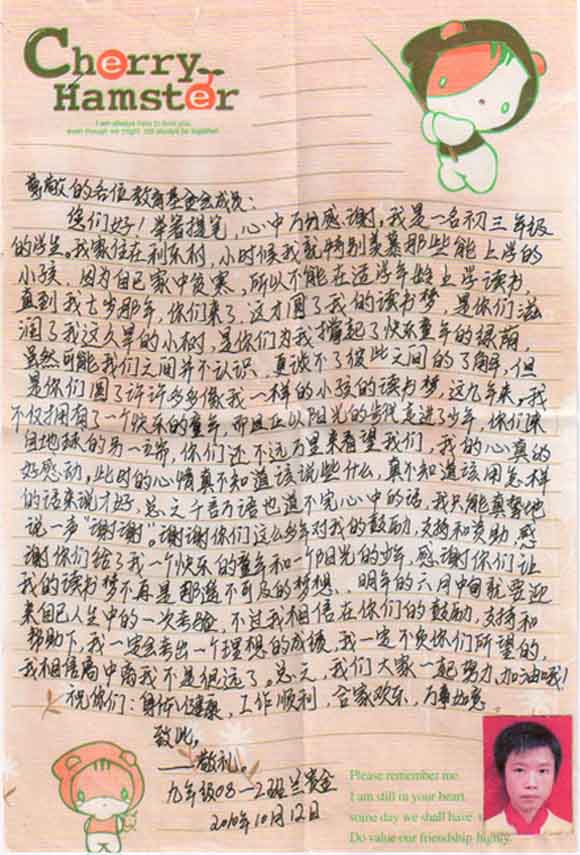 Cherry
Hamster
I am always here to love you,
even though we might not always be together
尊敬的各位教育基金会成员：
您们好！举着提笔，心中万分感谢，我是一名初三年级
的学生。我家住在利东村，小时候我就特别羡慕那些能上学的
小孩，因为自己家中贫寒，所以不能在适学年龄上学读书，
直到我七岁那年，你们来了，这才圆了我的读书梦，是你们滋
润了我这久旱的小树，是你们为我撑起了快乐童年的绿荫，
虽然可能我们之间并不认识，真谈不了彼此之间的了解，但
是你们圆了许许多多像我一样的小孩的读书梦，这九年来，我
不仅拥有了一个快乐的童年，而且正以阳光的步伐走进了少年，你们来
自地球的另一端，你们还不远万里来看望我们，我的心真的
好感动，此时的心情真不知道该说些什么，真不知道该用怎样
的话来说才好，总之千言万语也道不完心中的话，我只能真挚地
说一声“谢谢”。谢谢你们这么多年对我的鼓励，支持和资助，感
谢你们给了我一个快乐的童年和一个阳光的少年，感谢你们让
我的读书梦不再是那遥不可及的梦想、明年的六月中旬就要迎
来自己人生中的一次考验，不过我相信在你们的鼓励，支持和
帮助下，我一定会考出一个理想的成绩，我一定不负你们所望的，
我相信高中离我不是很远了。总之，我们大家一起努力，加油哦！
祝你们：身体健康，工作顺利，合家欢乐，万事如意。
致此。
——敬礼。
九年级08－2班兰金
2010年10月12日
Please remember me
I am still in your heart
some day we shall have
Do value our friendship highly.